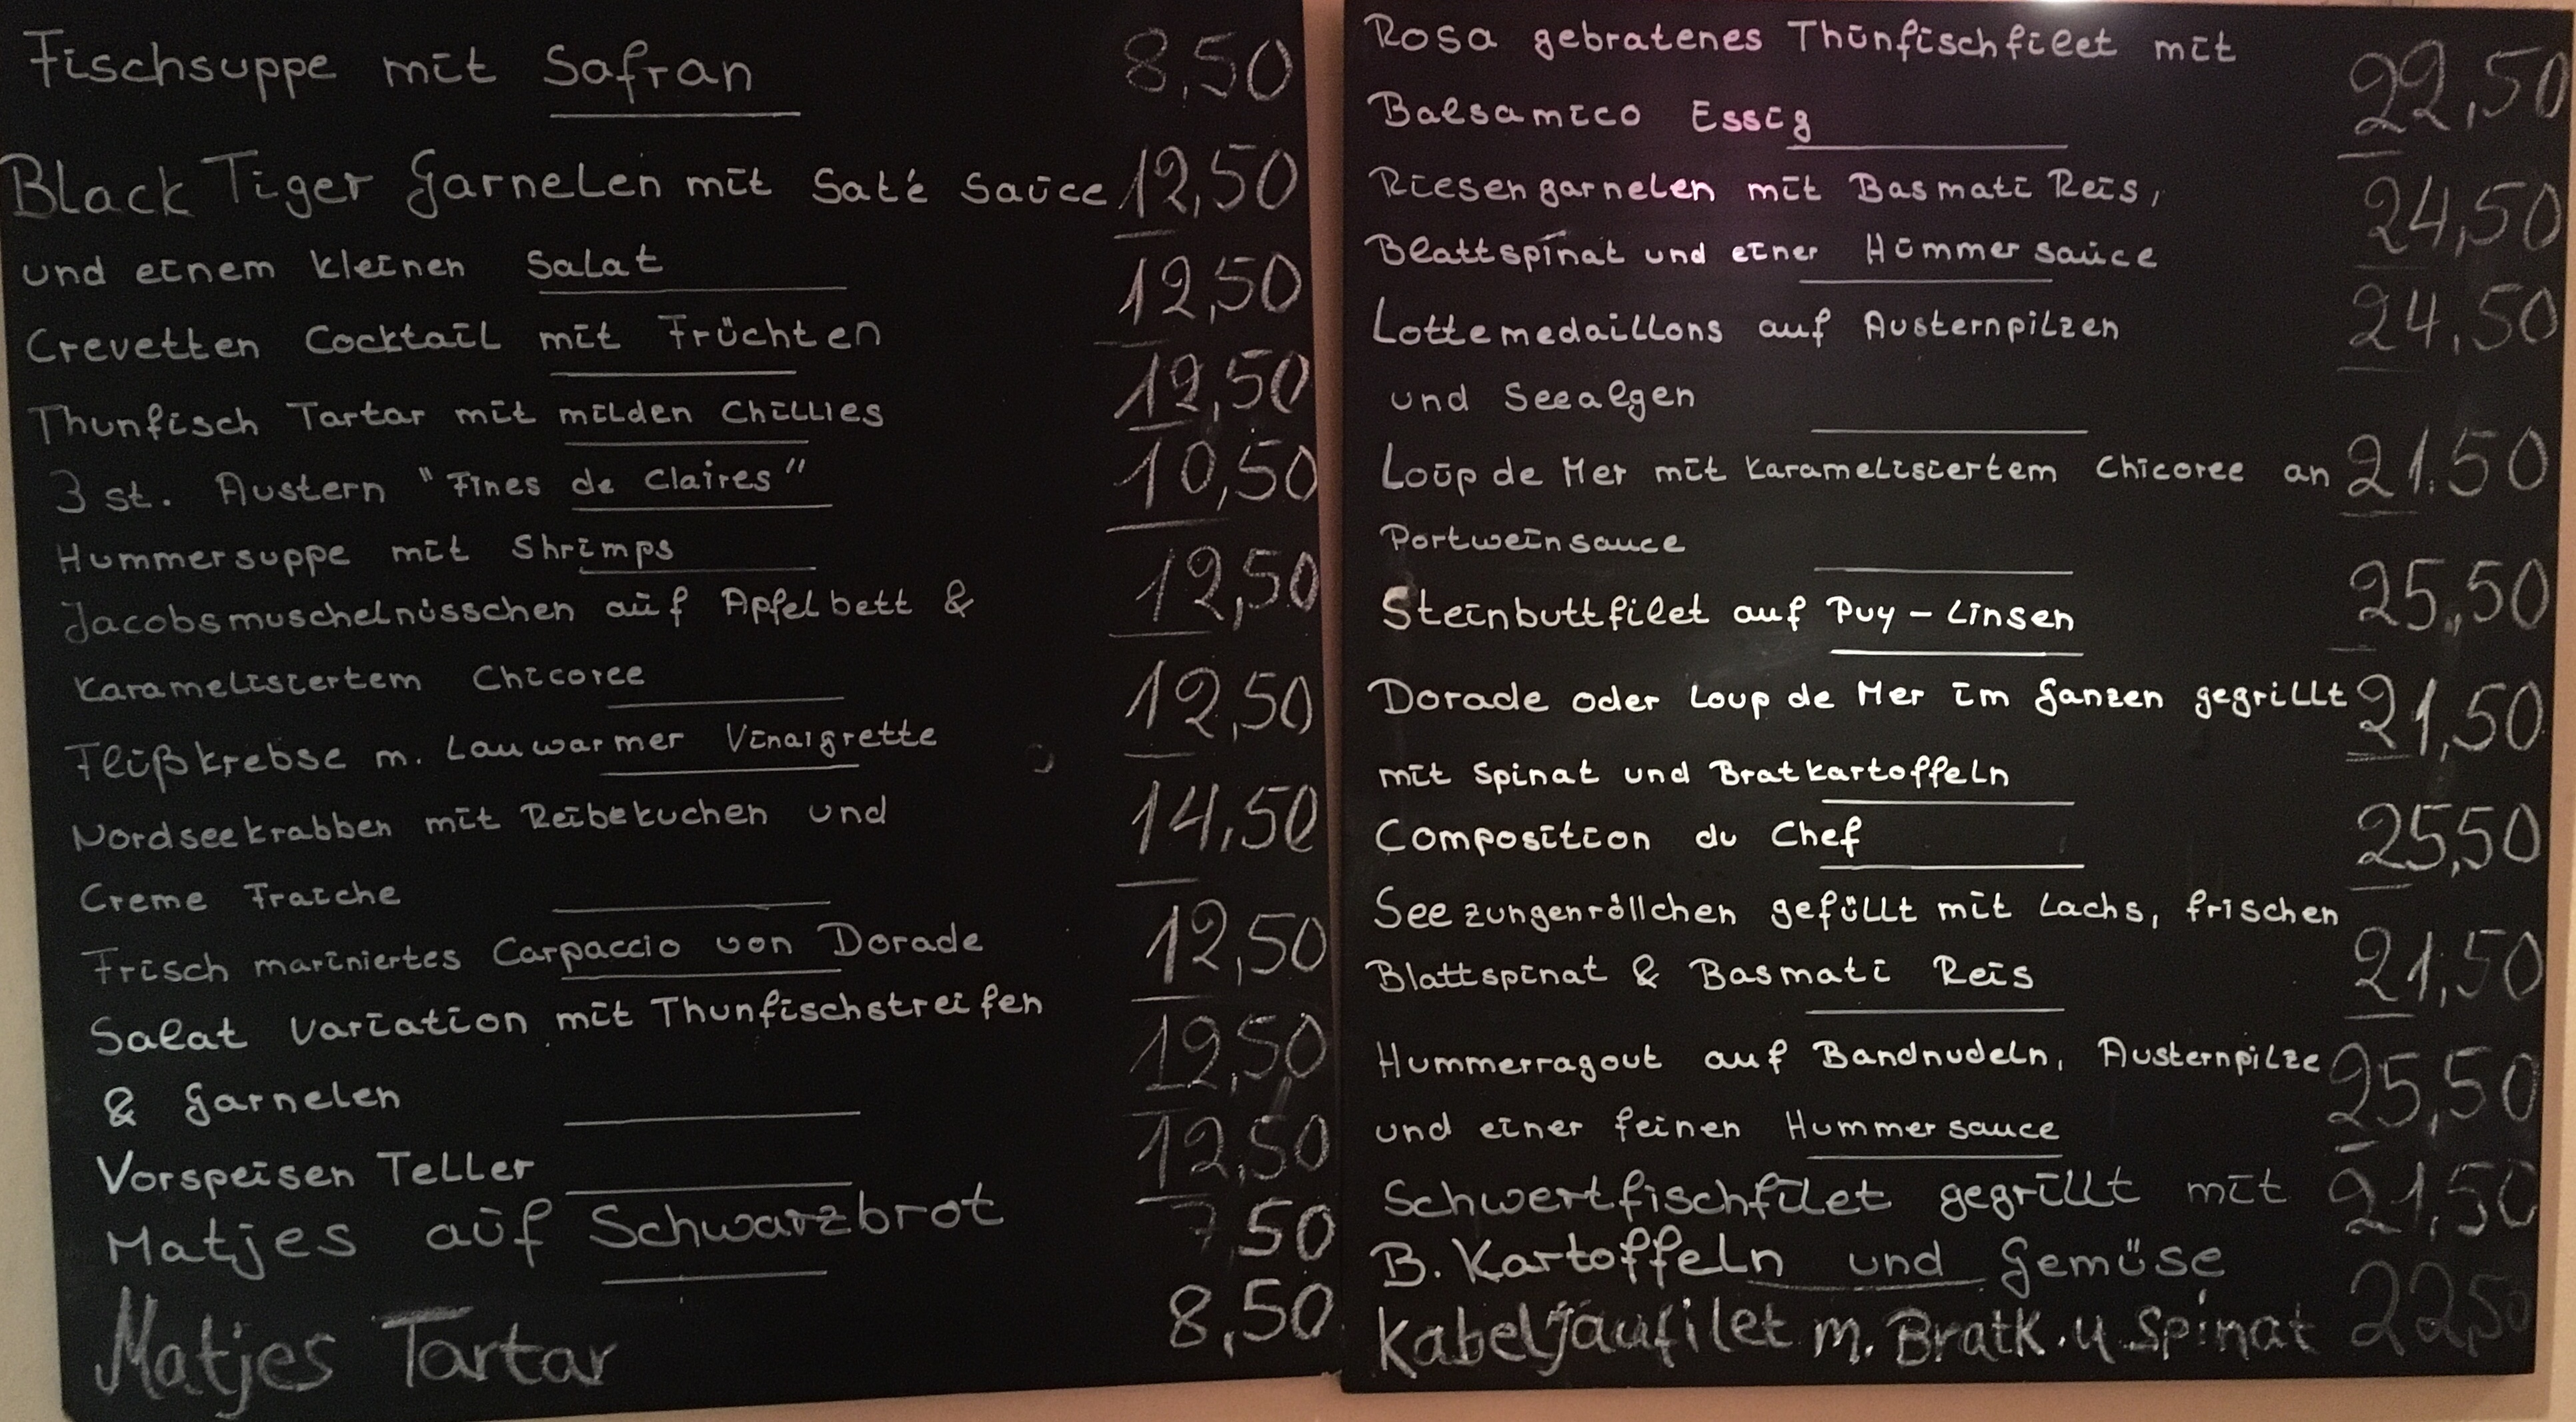 Fischsuppe mit Safran 8,50
Black Tiger Garnelen mit Saté Sauce 12,50
und einem kleinen Salat
Crevetten Cocktail mit Früchten 12,50
Thunfisch Tartar mit milden Chillies 12,50
3 st. Austern "Fines de Claires" 10,50
Hummersuppe mit Shrimps 12,50
Jacobsmuschelnüsschen auf Apfelbett &
karamelisiertem Chicoree 12,50
Flußkrebse m. Lauwarmer Vinaigrette 14,50
Nordseekrabben mit Reibekuchen und
Creme Fraiche 12,50
Frisch mariniertes Carpaccio von Dorade
Salat Variation mit Thunfischstreifen 12,50
& Garnelen
Vorspeisen Teller 12,50
Matjes auf Schwarzbrot 7,50
Matjes Tartar 8,50
Rosa gebratenes Thunfischfilet mit 22,50
Balsamico Essig
Riesengarnelen mit Basmati Reis, 24,50
Blattspinat und einer Hummersauce
Lottemedaillons auf Austernpilzen 24,50
und Seealgen
Loup de Mer mit karamelisiertem Chicoree an 21,50
Portweinsauce
Steinbuttfilet auf Puy-Linsen 25,50
Dorade oder Loup de Mer im Ganzen gegrillt 21,50
mit Spinat und Bratkartoffeln
Composition du Chef 25,50
Seezungenröllchen gefüllt mit Lachs, frischen
Blattspinat & Basmati Reis 21,50
Hummerragout auf Bandnudeln, Austernpilze 25,50
und einer feinen Hummersauce
Schwertfischfilet gegrillt mit 21,50
B. Kartoffeln und Gemüse
Kabeljaufilet m. Bratk. u Spinat 22,50